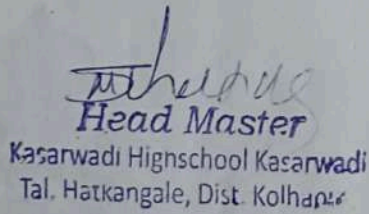 Head Master
Kasarwadi Highschool Kasarwadi
Tal. Hatkangale, Dist. Kolhapur